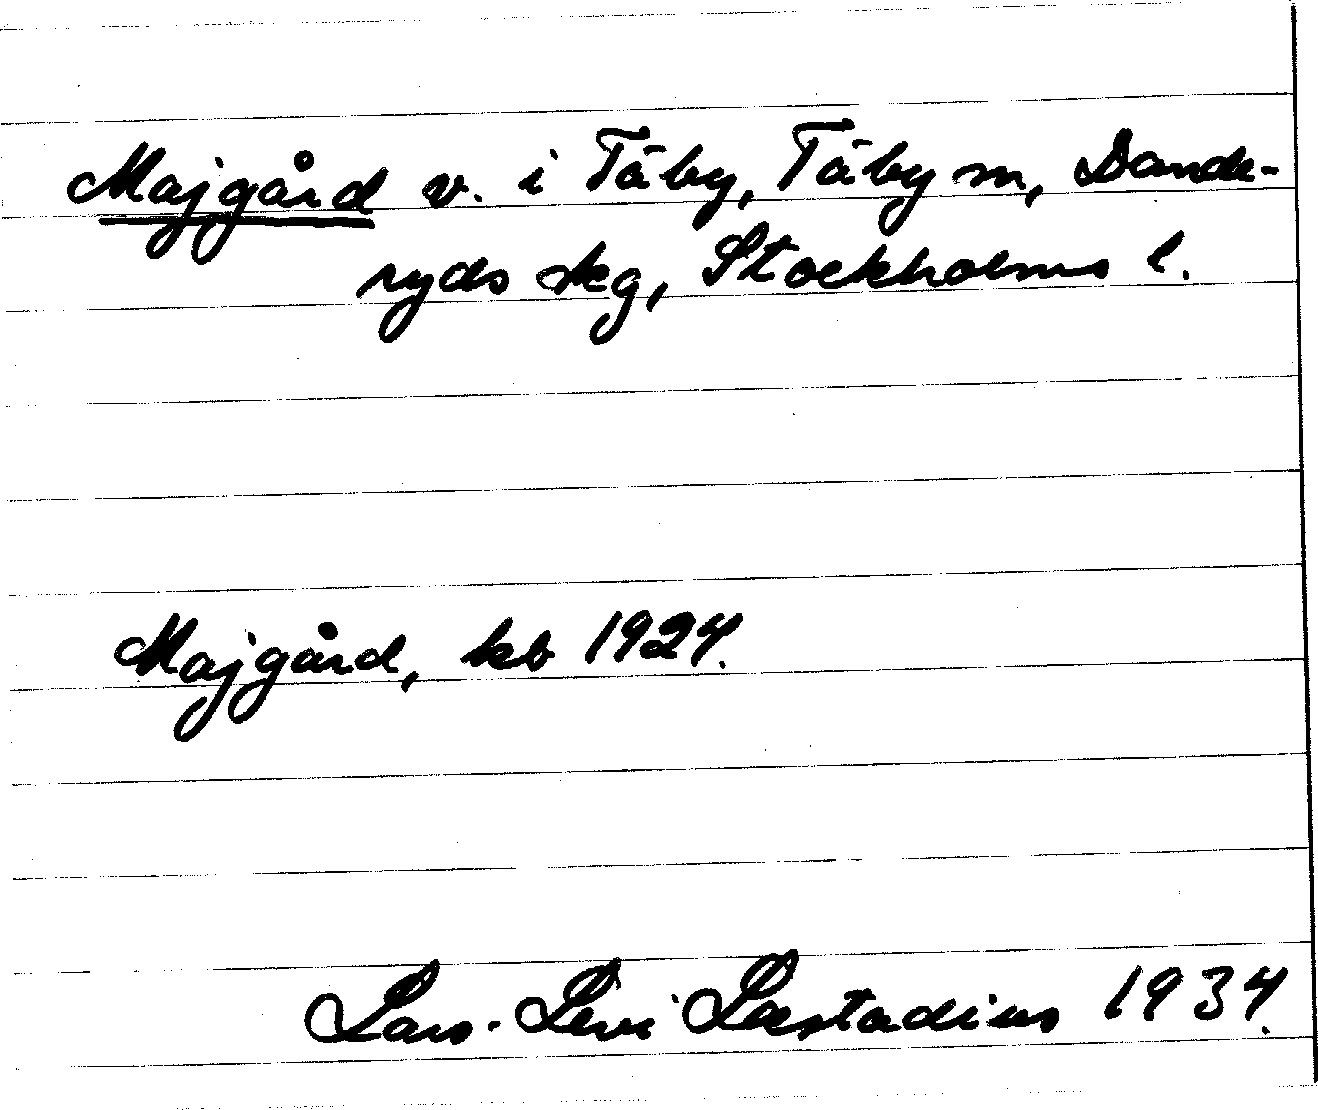 Majgård v. i Täby, Täby sn, Dande-
ryds skg, Stockholms l.
Majgård, kb 1924.
Lars-Levi Læstadius 1934.